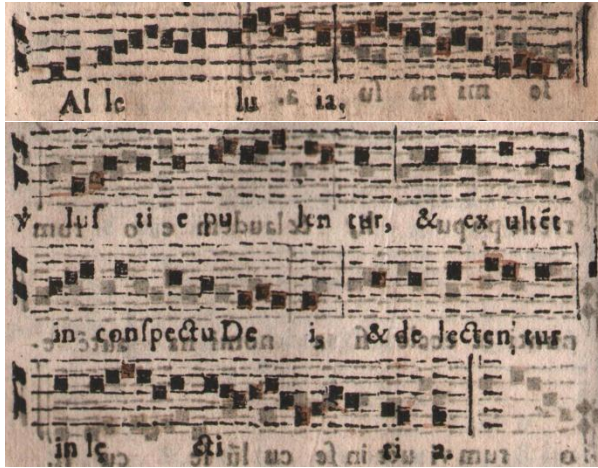 Al le lu ia,
℣ Iuſ ti e pu len tur, & ex ultēt
in conſpectu De i, & de lecten tur
in le ſti ti a.